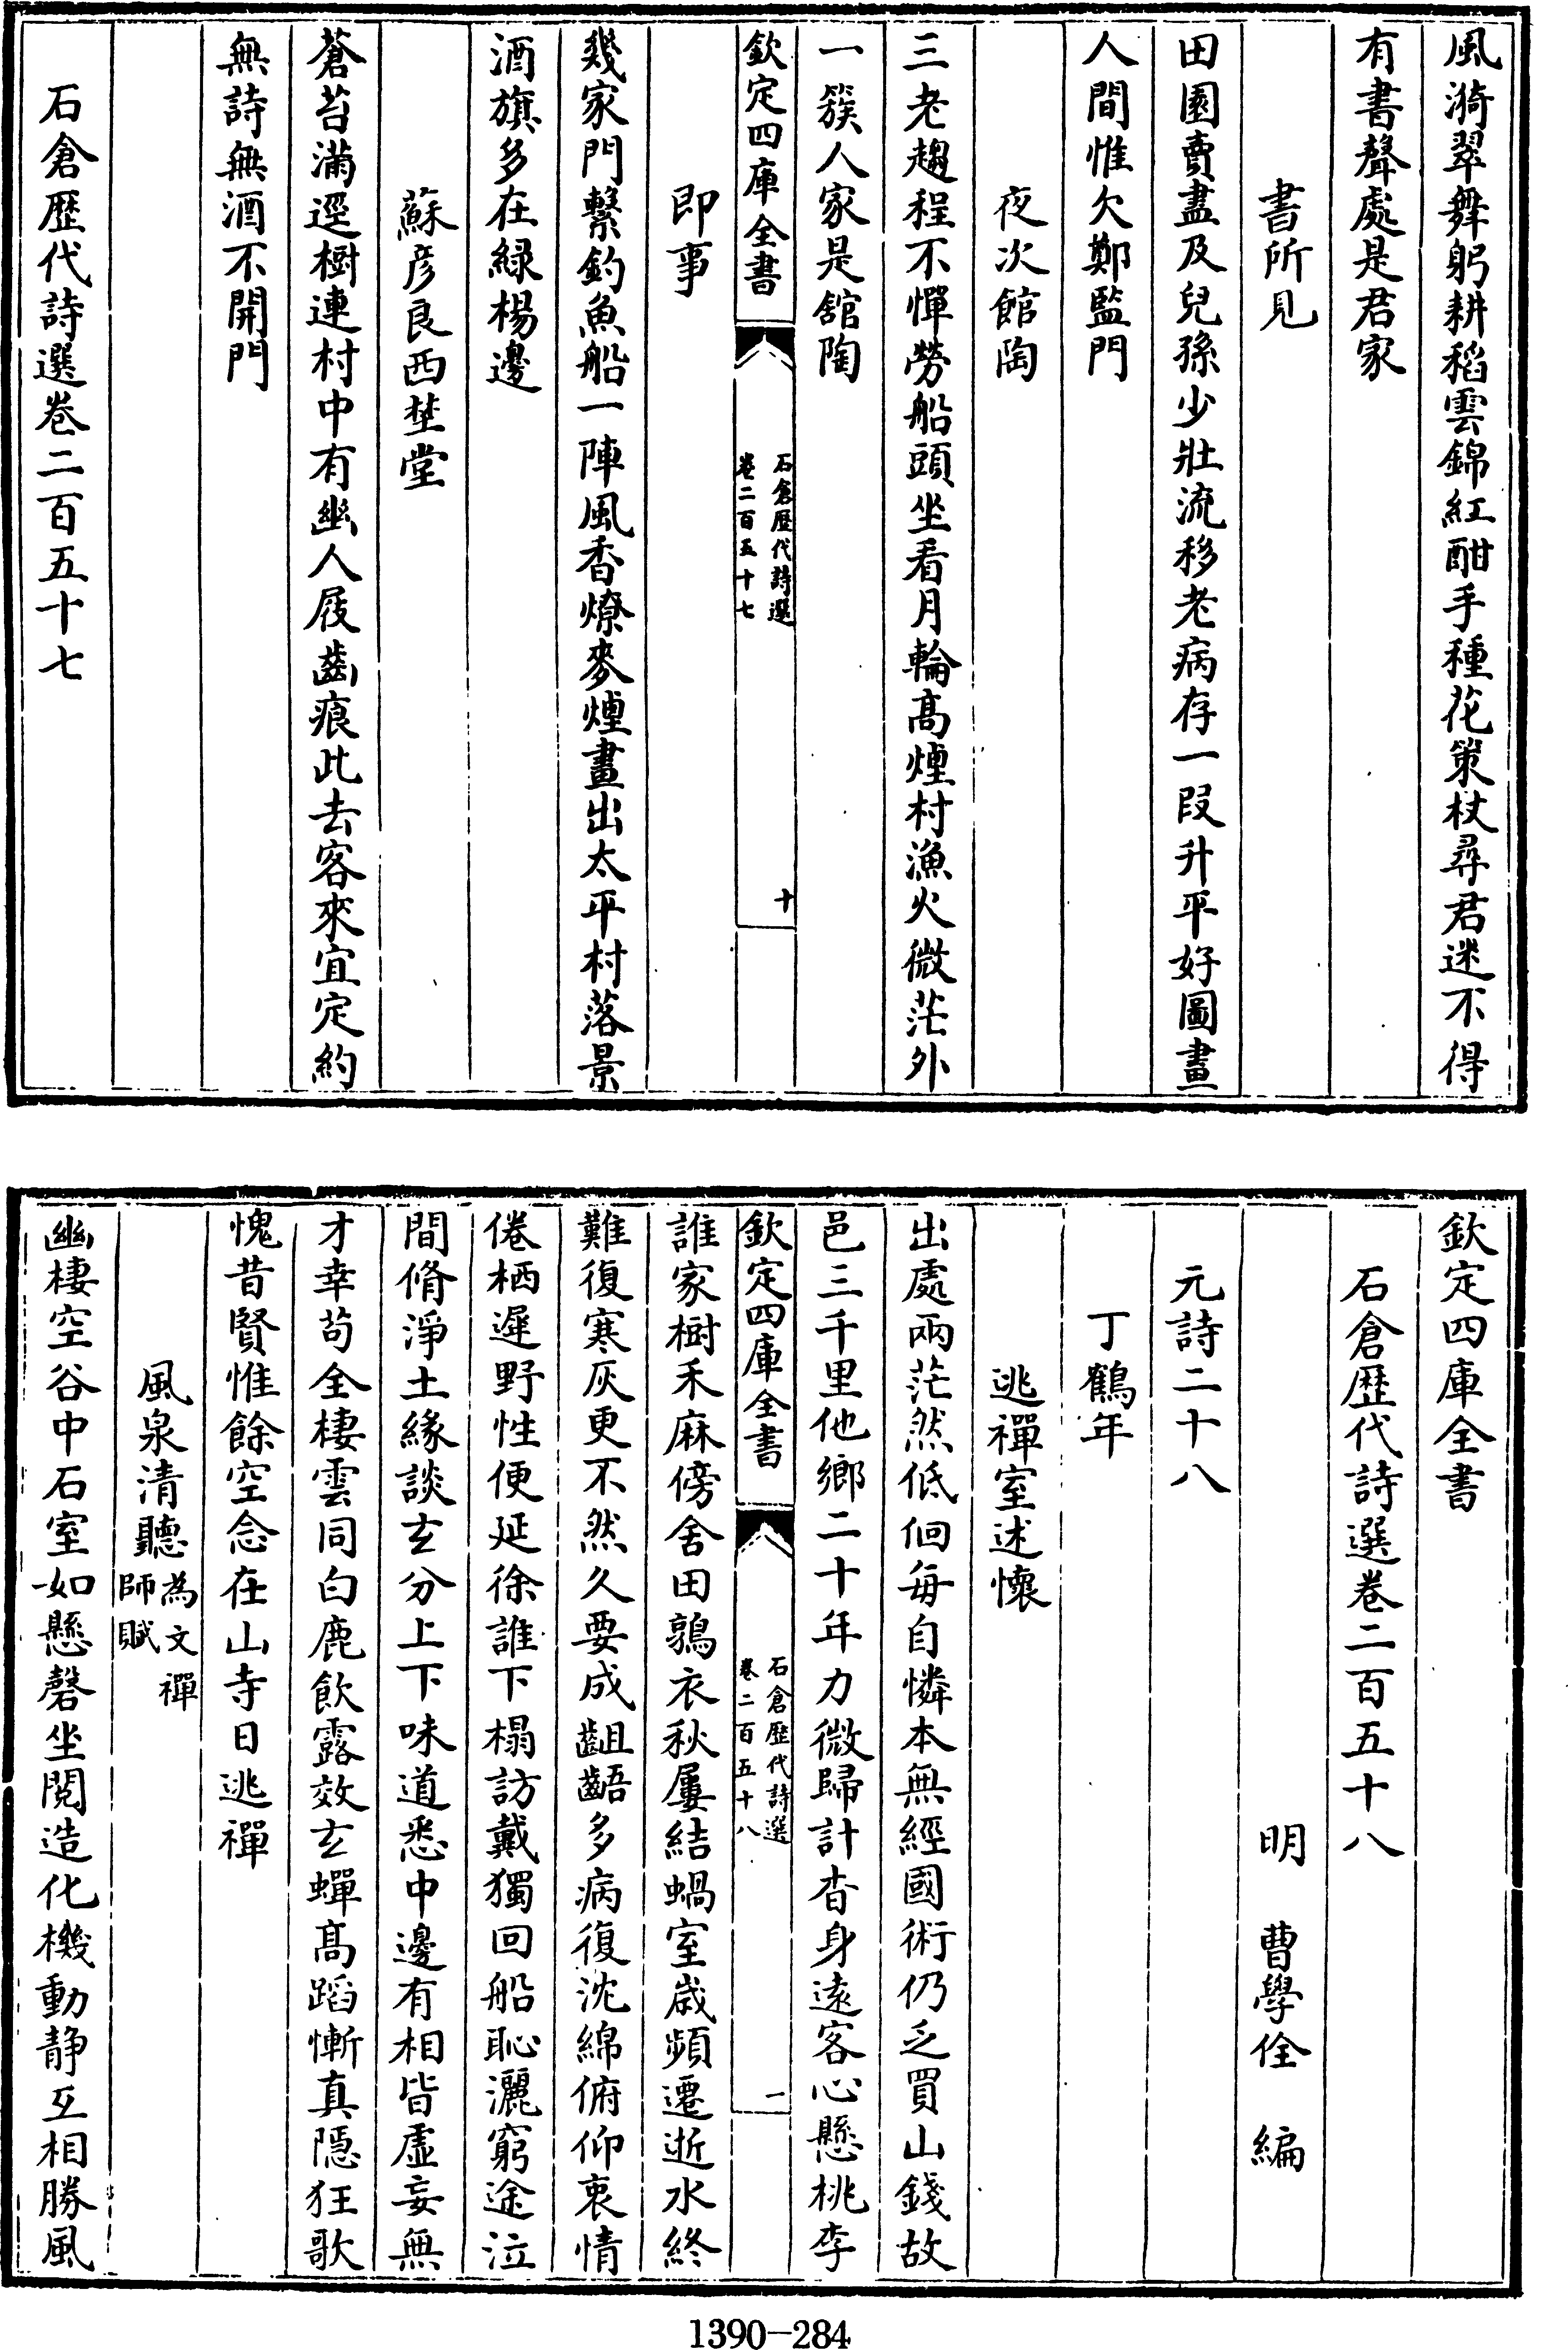 風漪翠舞躬耕稻雲錦紅酣手種花策杖尋君迷不得
有書聲處是君家
書所見
田園賣盡及兒孫少壯流移老病存一段升平好圖畫
人間惟欠鄭監門
夜次館陶
三老趨程不憚勞船頭坐看月輪高煙村漁火微茫外
一簇人家是舘陶
欽定四庫全書
石倉歷代詩選
卷二百五十七
十
即事
幾家門繫釣魚船一陣風香燎麥煙畫出太平村落景
酒旗多在緑楊邊
蘇彦良西埜堂
蒼苔滿逕樹連村中有幽人屐齒痕此去客來宜定約
無詩無酒不開門
石倉歷代詩選卷二百五十七
欽定四庫全書
石倉歷代詩選卷二百五十八
明 曹學佺 編
元詩二十八
丁鶴年
逃禪室述懷
出處兩茫然低佪每自憐本無經國術仍乏買山錢故
邑三千里他鄉二十年力微歸計杳身遠客心懸桃李
欽定四庫全書
石倉歷代詩選
卷二百五十八
一
誰家樹禾麻傍舍田鶉衣秋屢結蝸室歲頻遷逝水終
難復寒灰更不然久要成齟齬多病復沈綿俯仰衷情
倦栖遲野性便延徐誰下榻訪戴獨回船恥灑窮途泣
間脩淨土緣談玄分上下味道悉中邊有相皆虛妄無
才幸苟全棲雲同白鹿飲露效玄蟬高蹈慚真隱狂歌
愧昔賢惟餘空念在山寺日逃禪
風泉清聽為文禪師賦
幽棲空谷中石室如懸磬坐閱造化機動靜互相勝風
1390-284